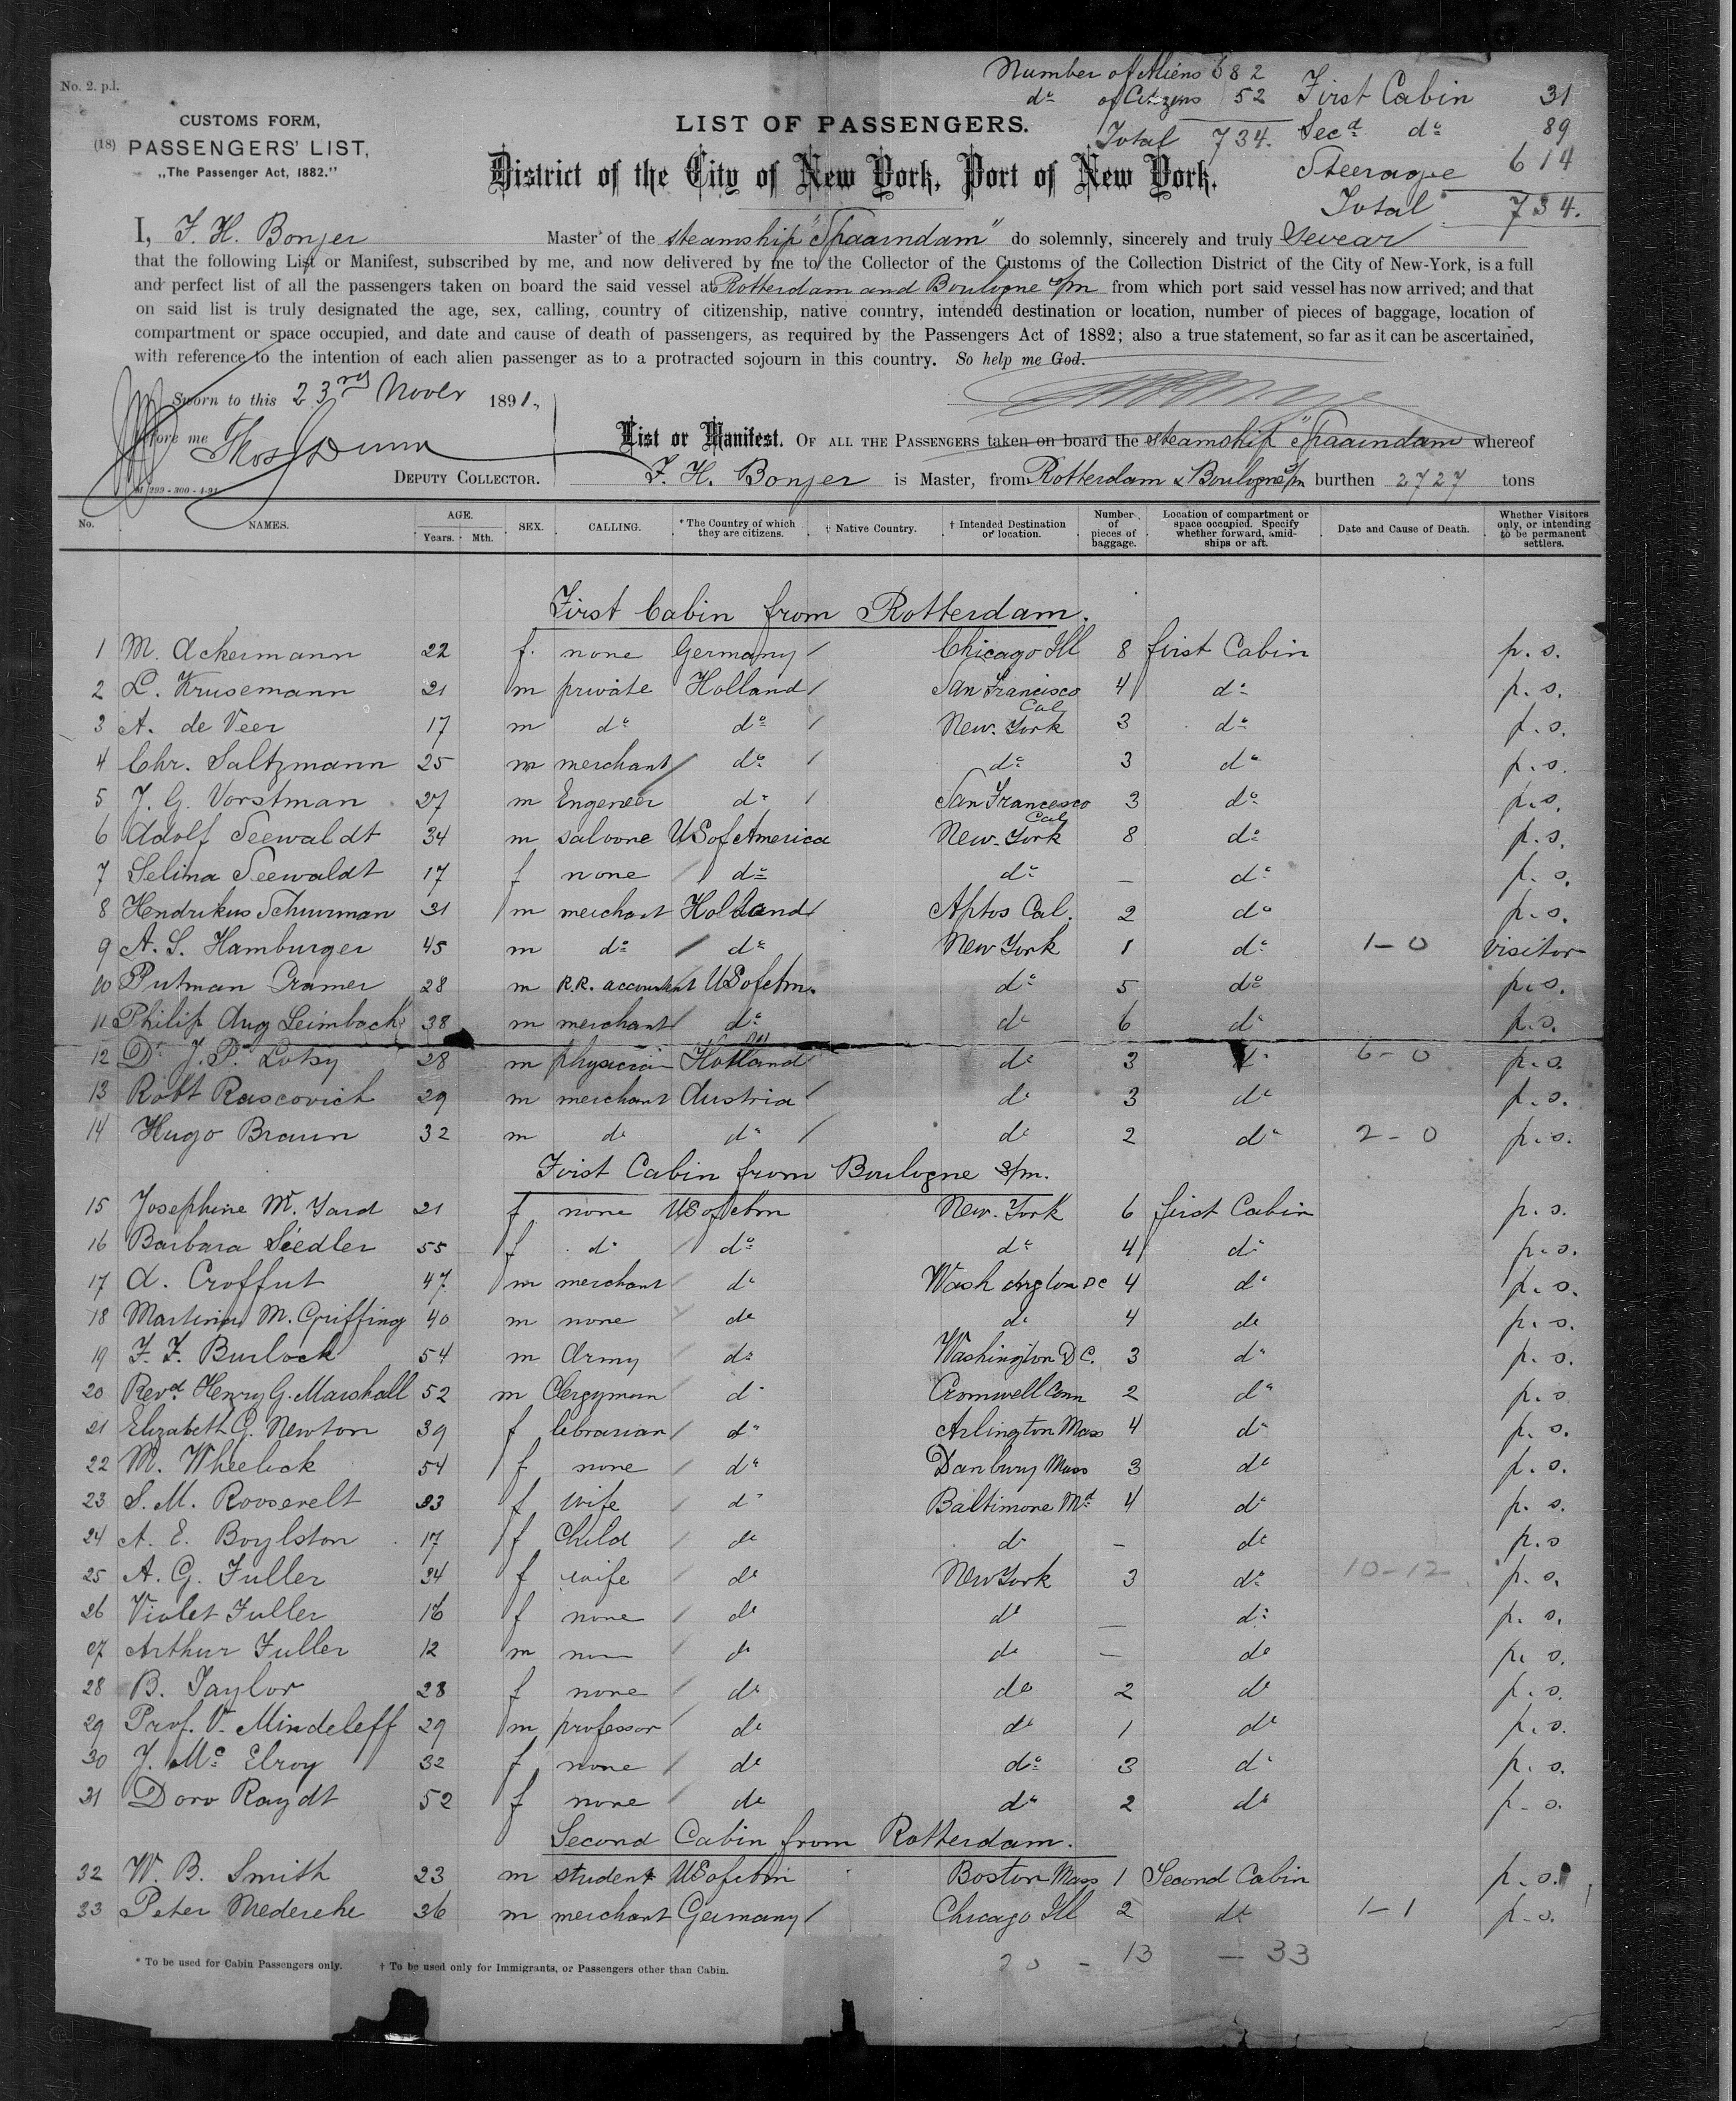 No. 2. p.l.
Number of Aliens 682
do of Citizens 52
Total 734.
First Cabin 31
Secd do 89
Steerage 614
Total 734.
CUSTOMS FORM,
(18) PASSENGERS' LIST,
„The Passenger Act, 1882."
LIST OF PASSENGERS.
District of the City of New York, Port of New York.
I, F. H. Bonjer Master of the steamship "Spaarndam" do solemnly, sincerely and truly Swear
that the following List or Manifest, subscribed by me, and now delivered by me to the Collector of the Customs of the Collection District of the City of New-York, is a full
and perfect list of all the passengers taken on board the said vessel at Rotterdam and Boulogne s/m from which port said vessel has now arrived; and that
on said list is truly designated the age, sex, calling, country of citizenship, native country, intended destination or location, number of pieces of baggage, location of
compartment or space occupied, and date and cause of death of passengers, as required by the Passengers Act of 1882; also a true statement, so far as it can be ascertained,
with reference to the intention of each alien passenger as to a protracted sojourn in this country. So help me God.
Sworn to this 23rd Novbr 1891.,
fore me Thos Dunn
DEPUTY COLLECTOR.
List or Manifest. OF ALL THE PASSENGERS taken on board the steamship "Spaarndam" whereof
F. H. Bonjer is Master, from Rotterdam & Boulogne s/m burthen 2727 tons
No. NAMES. AGE. Years. Mth. SEX. CALLING. * The Country of which they are citizens. † Native Country. † Intended Destination or location. Number of pieces of baggage. Location of compartment or space occupied. Specify whether forward, amidships or aft. Date and Cause of Death. Whether Visitors only, or intending to be permanent settlers.
First Cabin from Rotterdam.
1 M. Ackermann 22 f. none Germany / Chicago Ill 8 first Cabin p. s.
2 L. Krusemann 21 m private Holland / San Francisco Cal 4 do p. s.
3 A. de Veer 17 m do do / New-York 3 do p. s.
4 Chr. Saltzmann 25 m merchant / do / do 3 do p. s.
5 J. G. Vorstman 27 m Engeneer do / San Francesco Cal 3 do p. s.
6 Adolf Seewaldt 34 m saloone US of America New-York 8 do p. s.
7 Selina Seewaldt 17 f none / do do — do p. s.
8 Hendrikus Schuurman 31 m merchant Holland / Aptos Cal. 2 do p. s.
9 A. S. Hamburger 45 m do / do New York 1 do 1-0 visitor
10 Putman Cramer 28 m R.R. accountant US of Am. do 5 do p. s.
11 Philip Aug Leimbach 38 m merchant / do do 6 do p. s.
12 Dr J. P. Lotsy 28 m physician Holland do 3 do 6-0 p. s.
13 Robt Rascovich 29 m merchant Austria / do 3 do p. s.
14 Hugo Braun 32 m do do / do 2 do 2-0 p. s.
First Cabin from Boulogne s/m.
15 Josephine M. Yard 21 f none US of Am New-York 6 first Cabin p. s.
16 Barbara Siedler 55 f do / do do 4 do p. s.
17 A. Croffut 47 m merchant / do Washington DC 4 do p. s.
18 M. Griffing 40 m none / do do 4 do p. s.
19 F. F. Burlock 54 m Army do Washington D C. 3 do p. s.
20 Revd Henry G. Marshall 52 m Clergyman do Cromwell Conn 2 do p. s
21 Elizabeth G. Newton 39 f librarian / do Arlington Mass 4 do p. s.
22 M. Wheelock 54 f none / do Danbury Mass 3 do p. s.
23 S. M. Roosevelt 33 f wife / do Baltimore Md 4 do p. s.
24 A. E. Boylston 17 f Child / do do — do p. s
25 A. G. Fuller 34 f wife / do New York 3 do 10-12 p. s.
26 Violet Fuller 16 f none / do do — do p. s.
27 Arthur Fuller 12 m none / do do — do p. s.
28 B. Taylor 28 f none / do do 2 do p. s.
29 Prof. V. Mindeleff 29 m professor / do do 1 do p. s.
30 J. Mc Elroy 32 f none / do do 3 do p. s.
31 Doro Raydt 52 f none / do do 2 do p. s.
Second Cabin from Rotterdam.
32 W. B. Smith 23 m student US of Am Boston Mass 1 Second Cabin p. s.
33 Peter Mederche 36 m merchant Germany / Chicago Ill 2 do 1-1 p. s.
20 - 13 — 33
* To be used for Cabin Passengers only. † To be used only for Immigrants, or Passengers other than Cabin.